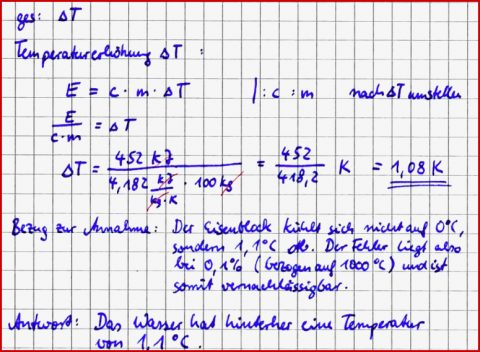 ges: ΔT
Temperaturerhöhung ΔT :
E = c · m · ΔT |:c :m nach ΔT umstellen
E/(c·m) = ΔT
ΔT = 452 kJ / (4,182 kJ/(kg·K) · 100 kg) = 452/418,2 K = 1,08 K
Bezug zur Annahme: Der Eisenblock kühlt sich nicht auf 0°C,
sondern 1,1°C ab. Der Fehler liegt also
bei 0,1% (bezogen auf 1000°C) und ist
somit vernachlässigbar.
Antwort: Das Wasser hat hinterher eine Temperatur
von 1,1°C.